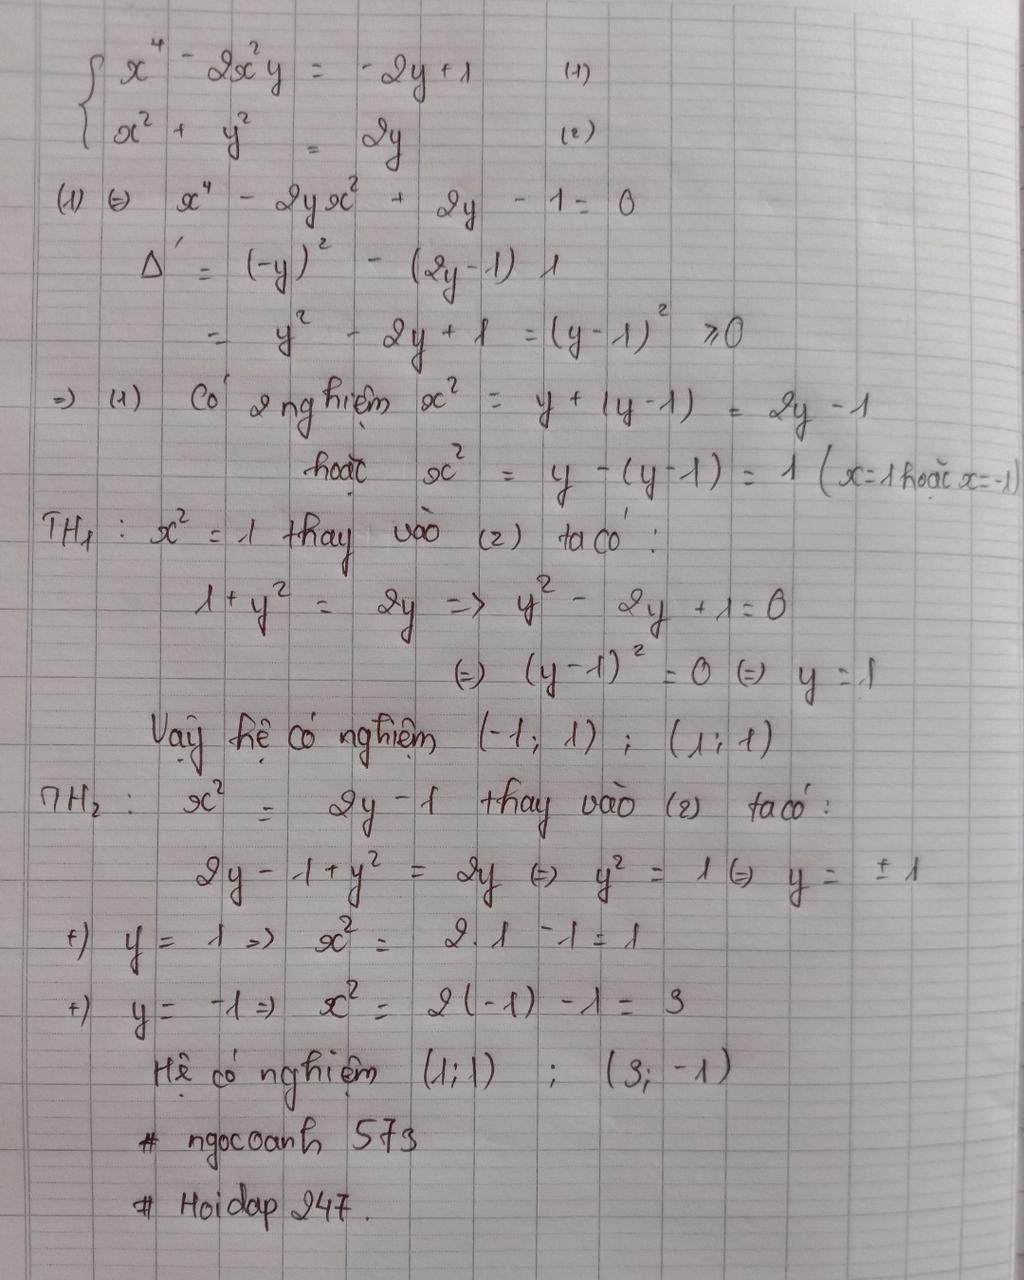 x⁴ - 2x²y = -2y + 1 (1)
x² + y² = 2y (2)
(1) (=) x⁴ - 2yx² + 2y - 1 = 0
Δ' = (-y)² - (2y-1) 1
= y² - 2y + 1 = (y-1)² ≥ 0
=> (1) Có 2 nghiệm x² = y + (y-1) = 2y - 1
hoặc x² = y - (y-1) = 1 (x=1 hoặc x=-1)
TH₁ : x² = 1 thay vào (2) ta có :
1 + y² = 2y => y² - 2y + 1 = 0
(=) (y-1)² = 0 (=) y = 1
Vậy hệ có nghiệm (-1; 1) ; (1; 1)
TH₂ : x² = 2y - 1 thay vào (2) ta có :
2y - 1 + y² = 2y (=) y² = 1 (=) y = ±1
+) y = 1 => x² = 2.1 - 1 = 1
+) y = -1 => x² = 2(-1) - 1 = 3
Hệ có nghiệm (1;1) ; (3; -1)
# ngocoanh 573
# Hoidap 247.